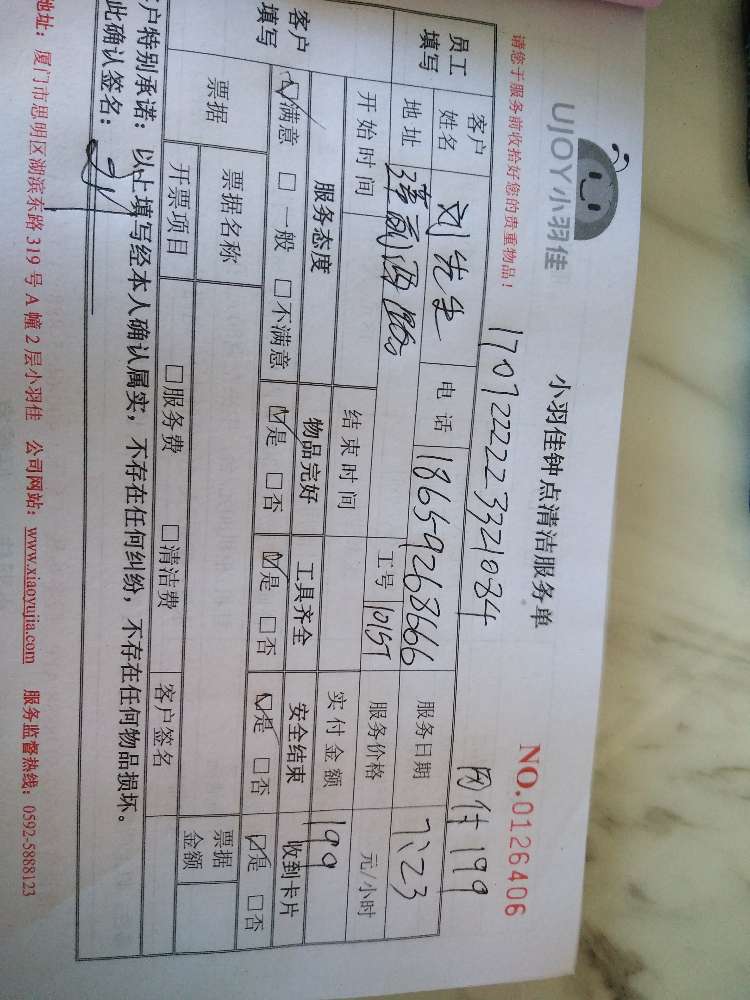 UJOY小羽佳
小羽佳钟点清洁服务单
NO.0126406
请您于服务前收拾好您的贵重物品!
17072222233321084 199
员工填写 客户姓名 刘先生 电话 18659268666 服务日期 7.23
地址 工号 1015T 服务价格 元/小时
开始时间 结束时间 实付金额 199
客户填写 服务态度 物品完好 工具齐全 安全结束 收到卡片
☑满意 □一般 □不满意 ☑是 □否 ☑是 □否 ☑是 □否 ☑是 □否
票据 票据名称 票据金额
开票项目 □服务费 □清洁费 客户签名
户特别承诺:以上填写经本人确认属实,不存在任何纠纷,不存在任何物品损坏。
此确认签名:
地址:厦门市思明区湖滨东路319号A幢2层小羽佳 公司网站:www.xiaoyujia.com 服务监督热线:0592-5888123